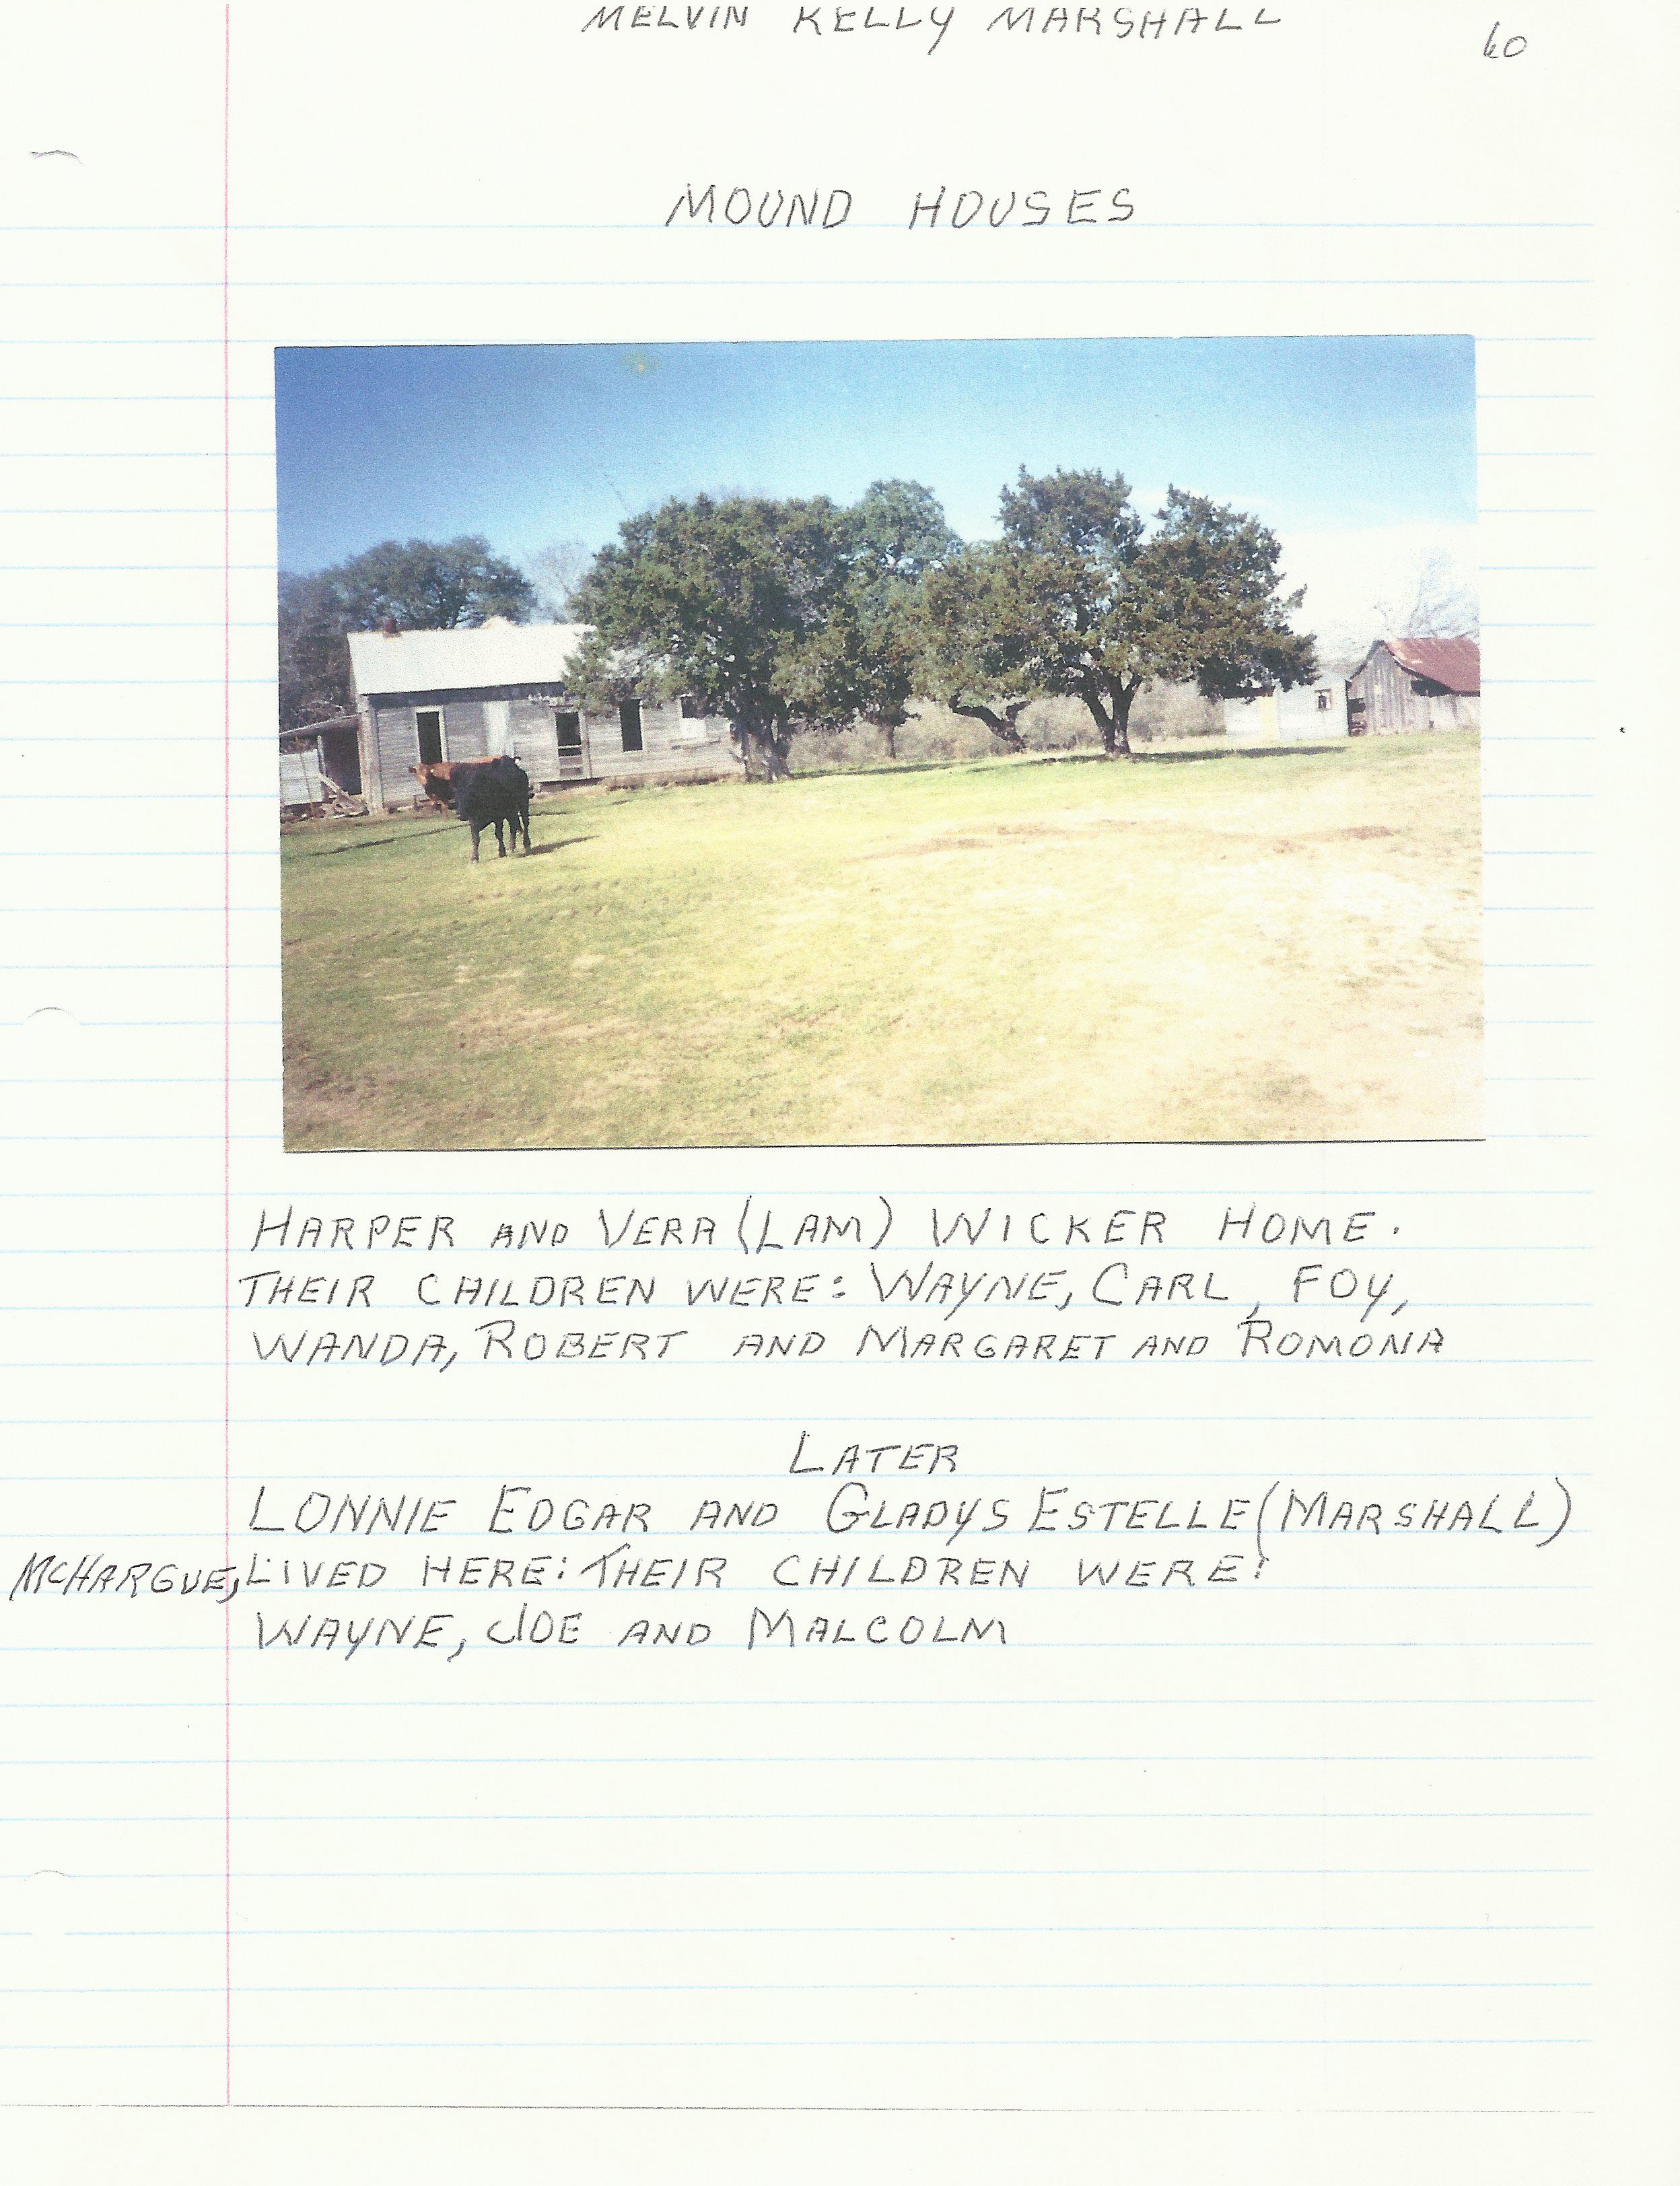 MELVIN KELLY MARSHALL
60
MOUND HOUSES
HARPER AND VERA (LAM) WICKER HOME.
THEIR CHILDREN WERE: WAYNE, CARL, FOY,
WANDA, ROBERT AND MARGARET AND ROMONA
LATER
LONNIE EDGAR AND GLADYS ESTELLE (MARSHALL)
MCHARGUE, LIVED HERE: THEIR CHILDREN WERE:
WAYNE, JOE AND MALCOLM